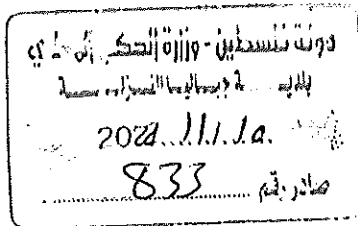 دولة فلسطين - وزارة الحكم المحلي
بلدية جباليا النزلة
2022/11/10
صادر رقم 833